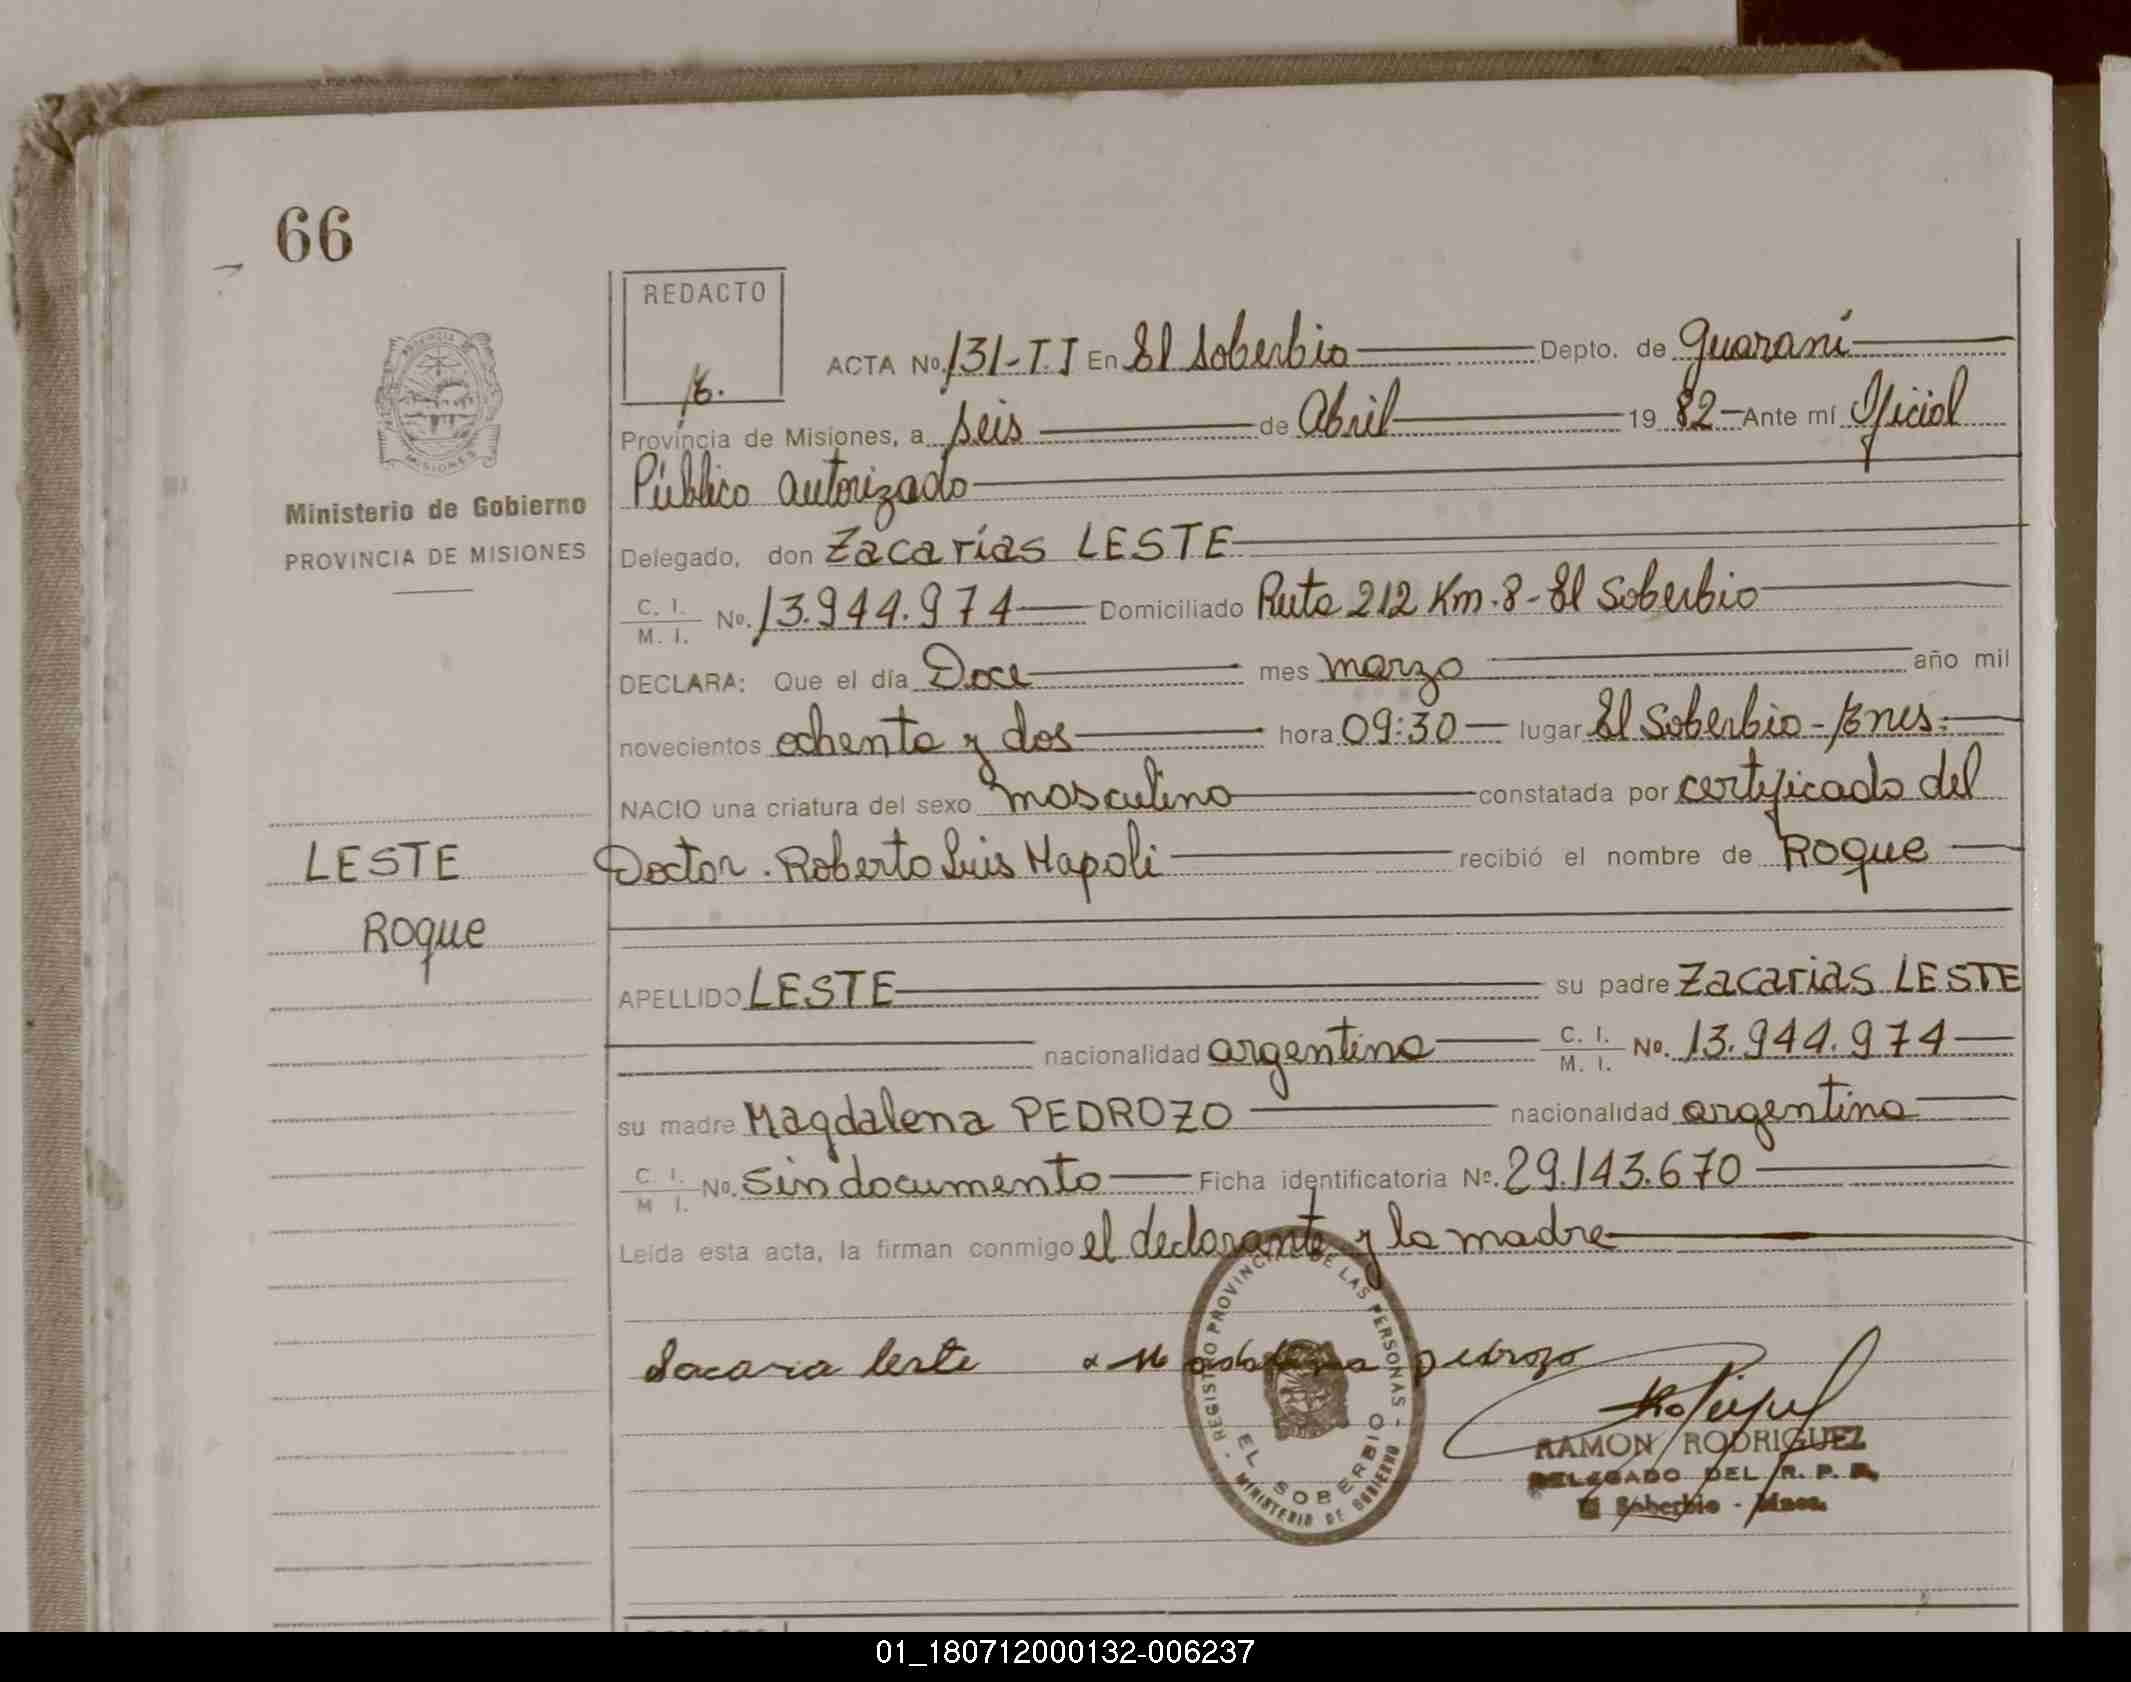 66
REDACTO
ACTA No. 131-T.I En El Soberbio Depto. de Guaraní
Provincia de Misiones, a seis de Abril 1982 Ante mí Oficial
Público autorizado
Ministerio de Gobierno
PROVINCIA DE MISIONES
Delegado, don Zacarías LESTE
C. I. M. I. No. 13.944.974 Domiciliado Ruta 212 Km. 8 - El Soberbio
DECLARA: Que el día Doce mes marzo año mil
novecientos ochenta y dos hora 09:30 lugar El Soberbio -
NACIO una criatura del sexo masculino constatada por certificado del
Doctor. Roberto Luis Napoli recibió el nombre de Roque
LESTE
Roque
APELLIDO LESTE su padre Zacarias LESTE
nacionalidad argentina C. I. M. I. No. 13.944.974
su madre Magdalena PEDROZO nacionalidad argentina
C. I. M I. No. sin documento Ficha identificatoria No. 29.143.670
Leída esta acta, la firman conmigo el declarante y la madre
REGISTRO PROVINCIAL DE LAS PERSONAS - MINISTERIO DE GOBIERNO -
EL SOBERBIO
Sacaria leste pedrozo
RAMON RODRIGUEZ
DELEGADO DEL R. P. P.
El Soberbio - Mnes.
01_180712000132-006237